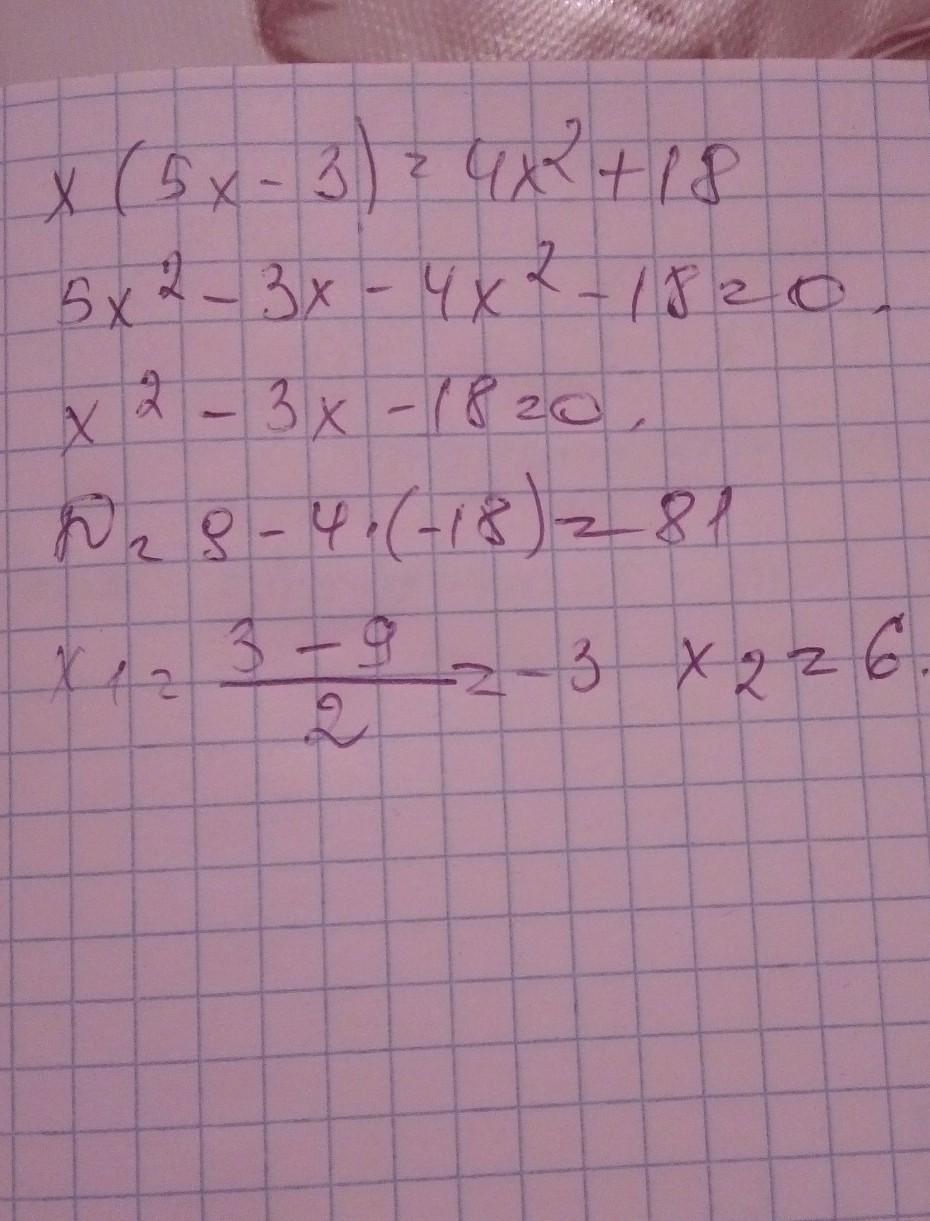 x(5x-3)=4x²+18
5x²-3x-4x²-18=0.
x²-3x-18=0.
D=9-4·(-18)=81
x₁=\frac{3-9}{2}=-3 x₂=6.